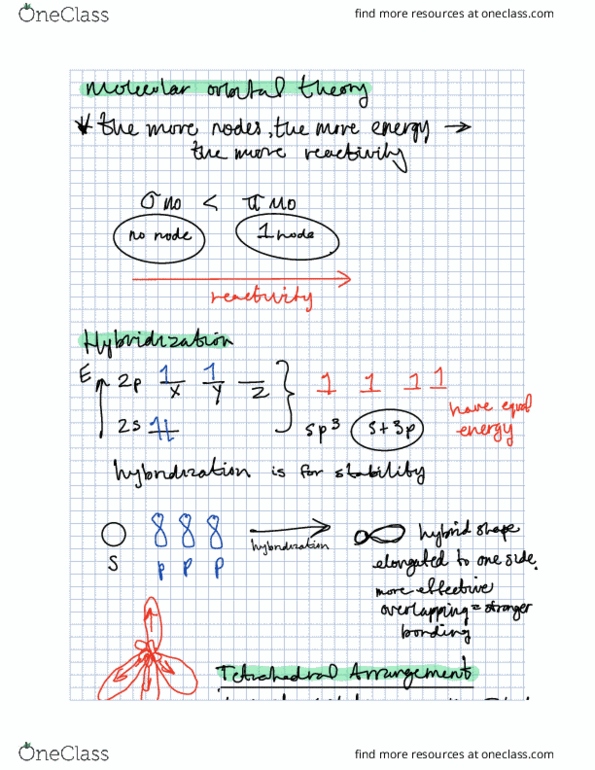 OneClass
find more resources at oneclass.com
molecular orbital theory
* the more nodes, the more energy →
the more reactivity
σ MO < π MO
no node 1 node
reactivity
Hybridization
E 2p 1 x 1 y z } 1 1 1 1
have equal
energy
2s 1l sp³ s+3p
hybridization is for stability
s p p p
hybridization
hybrid shape
elongated to one side.
more effective
overlapping = stronger
bonding
Tetrahedral Arrangement
OneClass
find more resources at oneclass.com